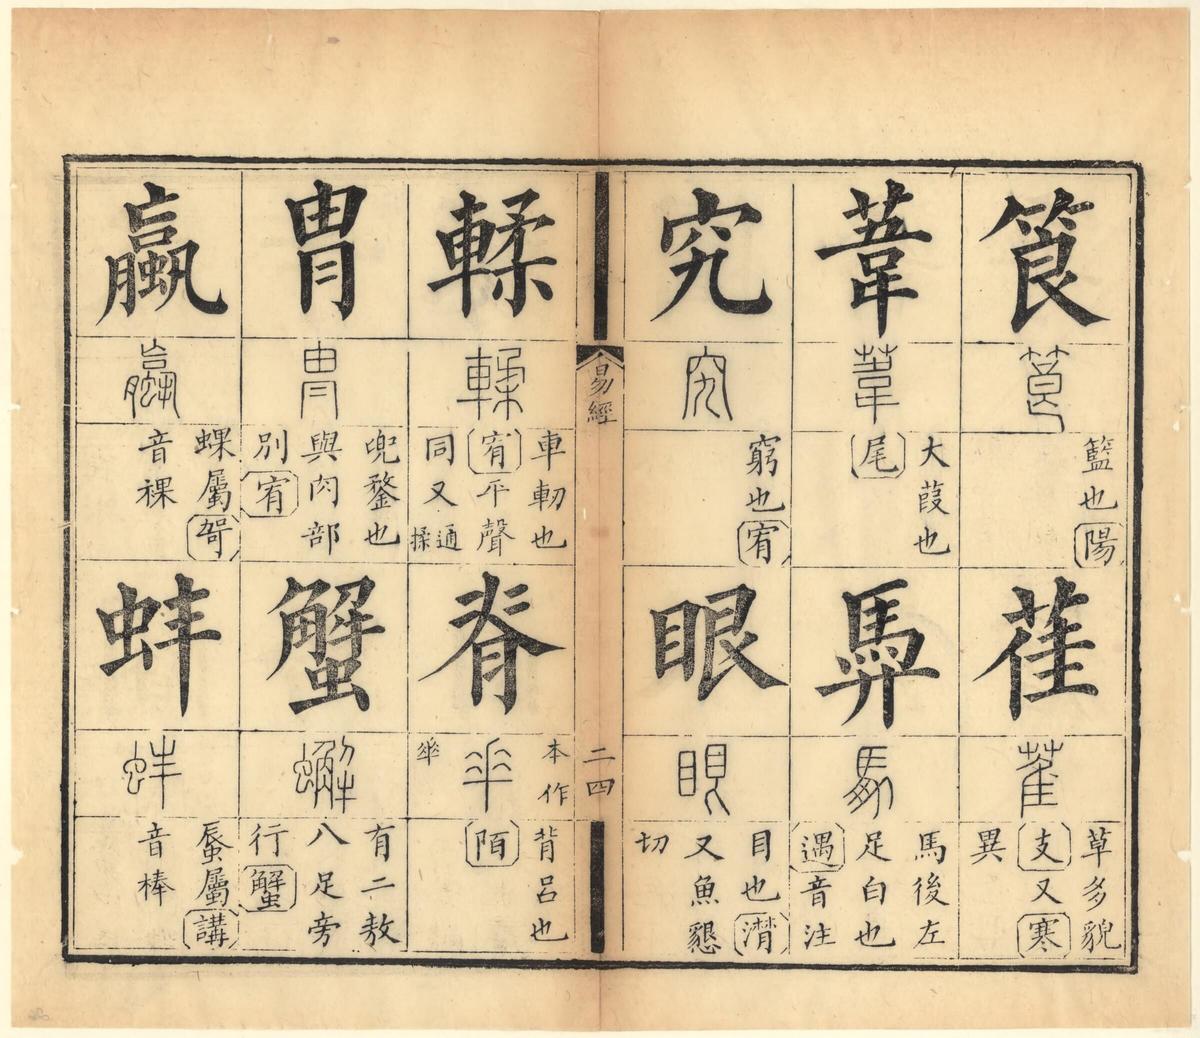 筤
筤
籃也陽
萑
萑
草多貌
支又寒
異
葦
葦
大葭也
尾
馵
馵
馬後左
足白也
遇音注
究
究
窮也宥
眼
眼
目也潸
又魚懇
切
易經
二四
輮
輮
車軔也
宥平聲
同又通揉
脊
本作𠦬
背呂也
陌
胄
胄
兜鍪也
與肉部
別宥
蟹
蟹
有二敖
八足旁
行蟹
蠃
蠃
蜾屬哿
音裸
蚌
蚌
蜃屬講
音棒